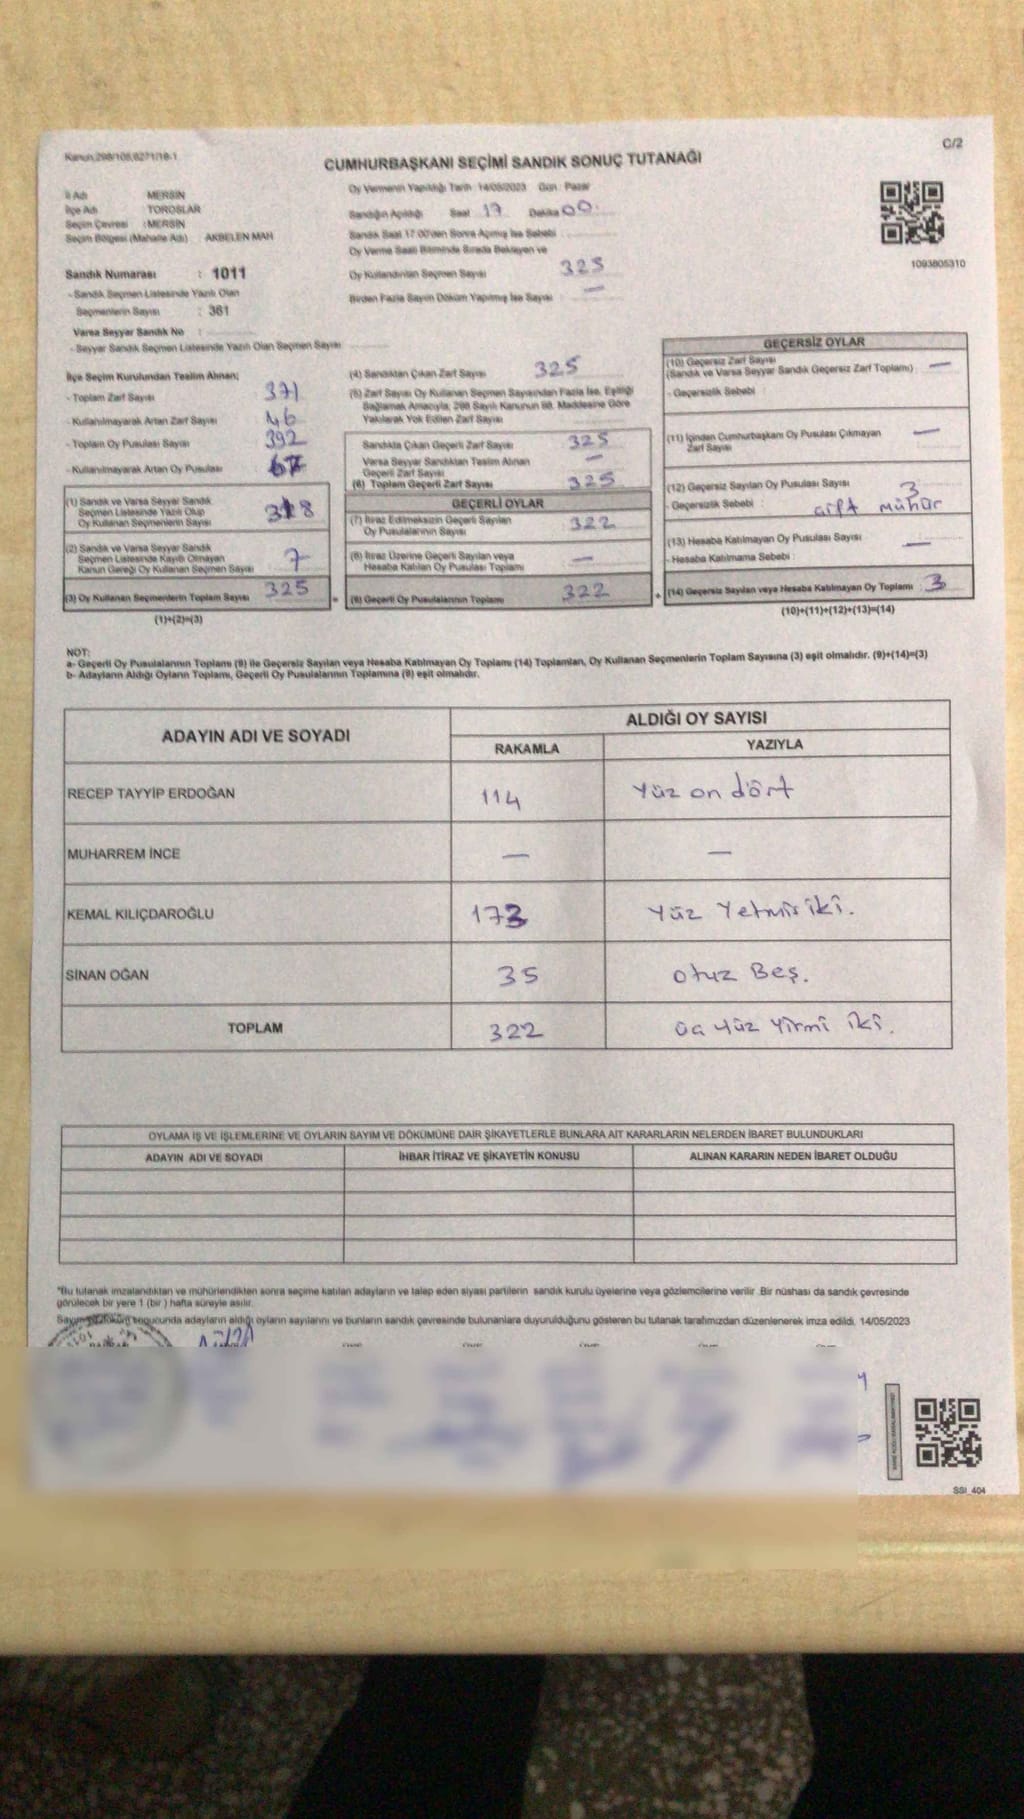 Kanun:298/105,6271/18-1
C/2
CUMHURBAŞKANI SEÇİMİ SANDIK SONUÇ TUTANAĞI
İl Adı MERSİN
İlçe Adı TOROSLAR
Seçim Çevresi : MERSİN
Seçim Bölgesi (Mahalle Adı) AKBELEN MAH
Sandık Numarası : 1011
- Sandık Seçmen Listesinde Yazılı Olan
Seçmenlerin Sayısı : 361
Varsa Seyyar Sandık No :
- Seyyar Sandık Seçmen Listesinde Yazılı Olan Seçmen Sayısı
Oy Vermenin Yapıldığı Tarih 14/05/2023 Gün : Pazar
Sandığın Açıldığı Saat 17 Dakika 00
Sandık Saat 17:00'den Sonra Açılmış İse Sebebi
Oy Verme Saati Bitiminde Sırada Bekleyen ve
Oy Kullandırılan Seçmen Sayısı 325
Birden Fazla Sayım Döküm Yapılmış İse Sayısı : —
1093805310
İlçe Seçim Kurulundan Teslim Alınan;
- Toplam Zarf Sayısı 371
- Kullanılmayarak Artan Zarf Sayısı 46
- Toplam Oy Pusulası Sayısı 392
- Kullanılmayarak Artan Oy Pusulası 67
(1) Sandık ve Varsa Seyyar Sandık
Seçmen Listesinde Yazılı Olup
Oy Kullanan Seçmenlerin Sayısı 318
(2) Sandık ve Varsa Seyyar Sandık
Seçmen Listesinde Kayıtlı Olmayan
Kanun Gereği Oy Kullanan Seçmen Sayısı 7
(3) Oy Kullanan Seçmenlerin Toplam Sayısı 325
(1)+(2)=(3)
(4) Sandıktan Çıkan Zarf Sayısı 325
(5) Zarf Sayısı Oy Kullanan Seçmen Sayısından Fazla İse, Eşitliği
Sağlamak Amacıyla, 298 Sayılı Kanunun 98. Maddesine Göre
Yakılarak Yok Edilen Zarf Sayısı
Sandıkta Çıkan Geçerli Zarf Sayısı 325
Varsa Seyyar Sandıktan Teslim Alınan
Geçerli Zarf Sayısı —
(6) Toplam Geçerli Zarf Sayısı 325
GEÇERLİ OYLAR
(7) İtiraz Edilmeksizin Geçerli Sayılan
Oy Pusulalarının Sayısı 322
(8) İtiraz Üzerine Geçerli Sayılan veya
Hesaba Katılan Oy Pusulası Toplamı —
(9) Geçerli Oy Pusulalarının Toplamı 322
GEÇERSİZ OYLAR
(10) Geçersiz Zarf Sayısı
(Sandık ve Varsa Seyyar Sandık Geçersiz Zarf Toplamı) —
- Geçersizlik Sebebi
(11) İçinden Cumhurbaşkanı Oy Pusulası Çıkmayan
Zarf Sayısı —
(12) Geçersiz Sayılan Oy Pusulası Sayısı 3
- Geçersizlik Sebebi : çift mühür
(13) Hesaba Katılmayan Oy Pusulası Sayısı —
- Hesaba Katılmama Sebebi :
(14) Geçersiz Sayılan veya Hesaba Katılmayan Oy Toplamı : 3
(10)+(11)+(12)+(13)=(14)
NOT:
a- Geçerli Oy Pusulalarının Toplamı (9) ile Geçersiz Sayılan veya Hesaba Katılmayan Oy Toplamı (14) Toplamları, Oy Kullanan Seçmenlerin Toplam Sayısına (3) eşit olmalıdır. (9)+(14)=(3)
b- Adayların Aldığı Oyların Toplamı, Geçerli Oy Pusulalarının Toplamına (9) eşit olmalıdır.
ADAYIN ADI VE SOYADI
ALDIĞI OY SAYISI
RAKAMLA YAZIYLA
RECEP TAYYİP ERDOĞAN 114 Yüz on dört
MUHARREM İNCE — —
KEMAL KILIÇDAROĞLU 173 Yüz Yetmiş iki.
SİNAN OĞAN 35 otuz Beş.
TOPLAM 322 üç yüz Yirmi iki.
OYLAMA İŞ VE İŞLEMLERİNE VE OYLARIN SAYIM VE DÖKÜMÜNE DAİR ŞİKAYETLERLE BUNLARA AİT KARARLARIN NELERDEN İBARET BULUNDUKLARI
ADAYIN ADI VE SOYADI İHBAR İTİRAZ VE ŞİKAYETİN KONUSU ALINAN KARARIN NEDEN İBARET OLDUĞU
"Bu tutanak imzalandıktan ve mühürlendikten sonra seçime katılan adayların ve talep eden siyasi partilerin sandık kurulu üyelerine veya gözlemcilerine verilir .Bir nüshası da sandık çevresinde
görülecek bir yere 1 (bir ) hafta süreyle asılır.
Sayım döküm sonucunda adayların aldığı oyların sayılarını ve bunların sandık çevresinde bulunanlara duyurulduğunu gösteren bu tutanak tarafımızdan düzenlenerek imza edildi. 14/05/2023
SSI_404